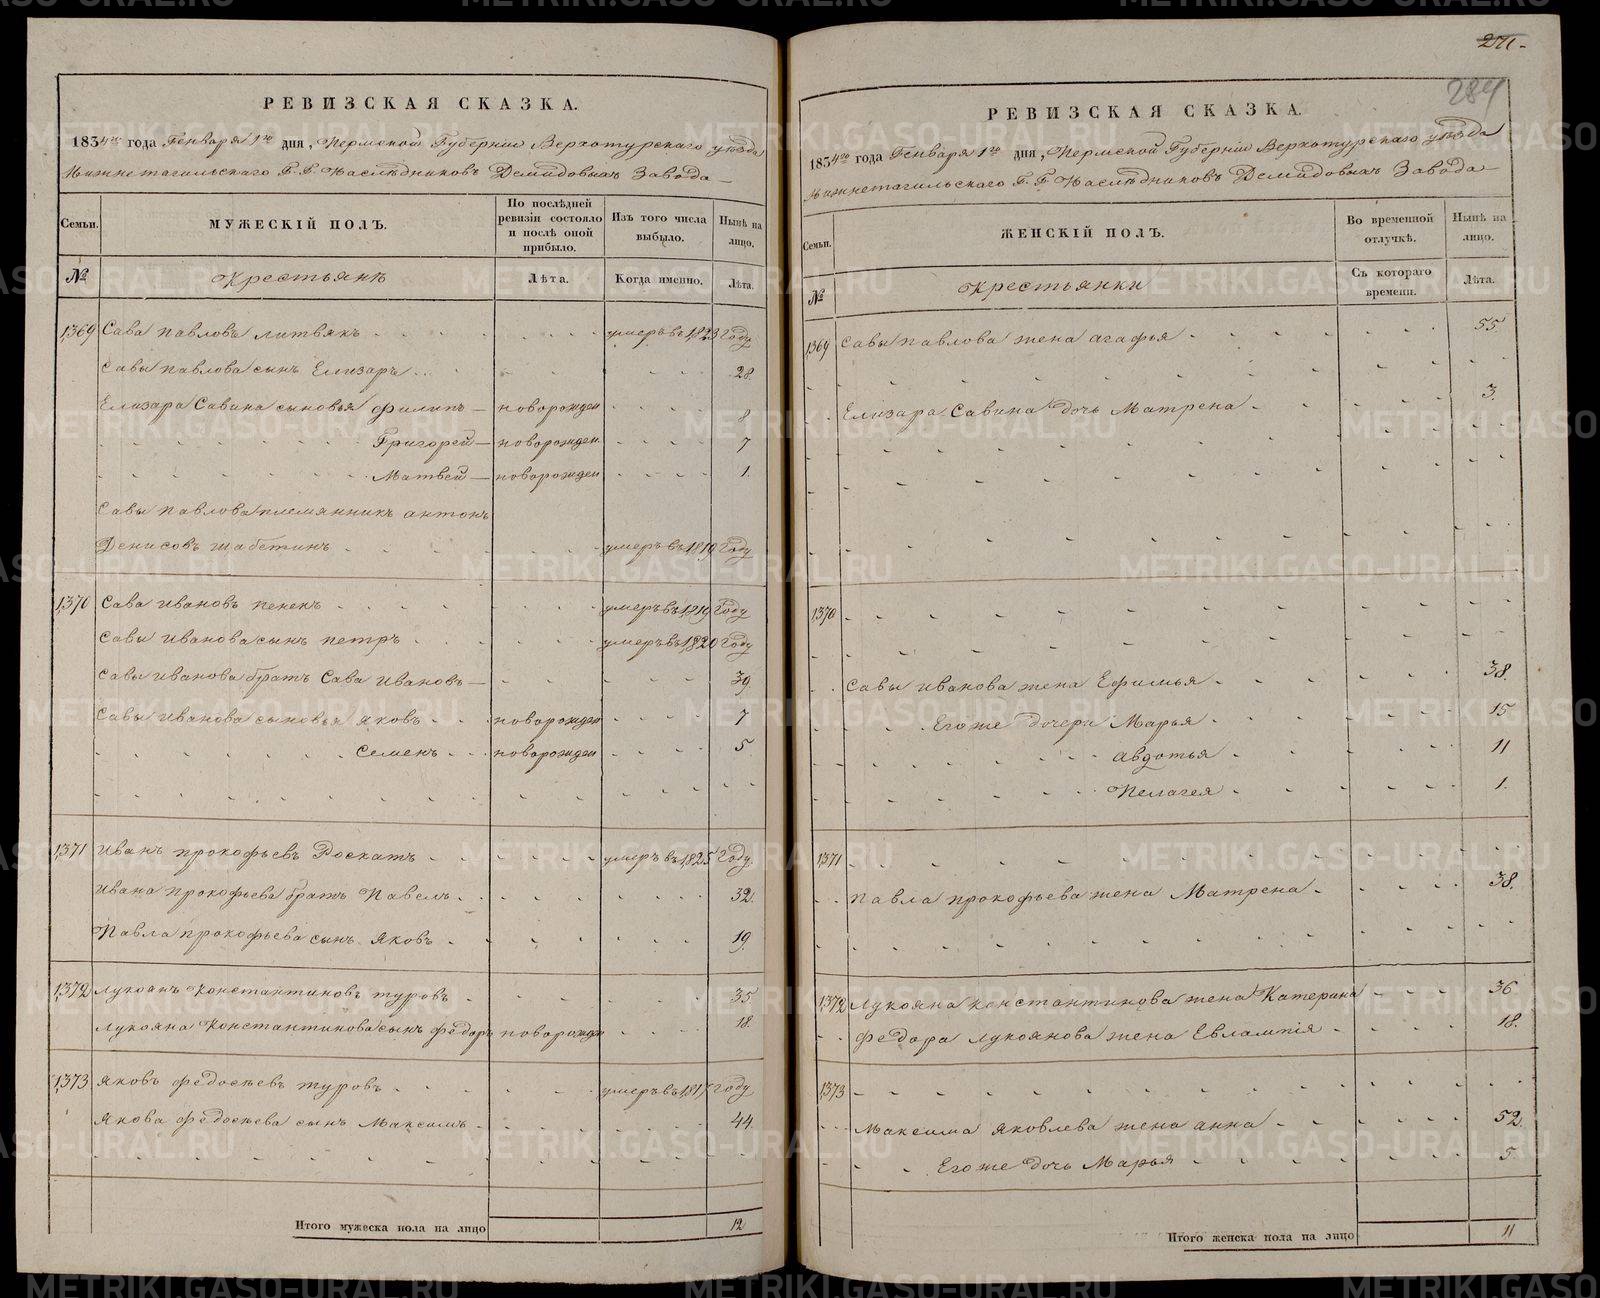 РЕВИЗСКАЯ СКАЗКА.
1834го года Генваря 1го дня, Пермской Губернии Верхотурскаго уѣзда
Нижнетагильскаго Г. Г. Наслѣдниковъ Демидовыхъ Завода
Семьи.
МУЖЕСКІЙ ПОЛЪ.
По послѣдней ревизіи состояло и послѣ оной прибыло.
Изъ того числа выбыло.
Нынѣ на лицо.
№
Крестьянѣ
Лѣта.
Когда именно.
Лѣта.
1369 Сава павловъ литвякъ умеръ въ 1823 Году
Савы павлова сынъ Елизаръ 28.
Елизара Савина сыновья филипъ — новорожден 8
Григорей — новорожден 7
Матвей — новорожден 1.
Савы павлова племянникъ антонъ
Денисовъ шабетинъ умеръ въ 1819 Году
1370 Сава ивановъ пенекъ умеръ въ 1819 Году
Савы иванова сынъ петръ умеръ въ 1820 Году
Савы иванова братъ Сава Ивановъ — 39.
Савы иванова сыновья яковъ новорожден 7
Семенъ новорожден 5.
1371 Иванъ прокофьевъ Роскатъ умеръ въ 1825 Году.
Ивана прокофьева братъ Павелъ 32.
Павла прокофьева сынъ яковъ 19.
1372 Лукоянъ Константиновъ туровъ 35.
Лукояна Константинова сынъ федоръ новорожден 18.
1373 Яковъ федосѣевъ туровъ умеръ въ Году
Якова федосѣева сынъ Максимъ 44.
Итого мужеска пола на лицо 12
271
284
РЕВИЗСКАЯ СКАЗКА.
1834го года Генваря 1го дня, Пермской Губернии Верхотурскаго уѣзда
Нижнетагильскаго Г. Г. Наслѣдниковъ Демидовыхъ Завода
Семьи.
ЖЕНСКІЙ ПОЛЪ.
Во временной отлучкѣ.
Нынѣ на лицо.
№
Крестьянки
Съ котораго времени.
Лѣта.
1369 Савы павлова жена агафья 55
Елизара Савина дочь Матрена 3.
1370
Савы иванова жена Ефимья 38.
Егоже дочери Марья 15
авдотья 11
Пелагея 1.
1371
Павла прокофьева жена Матрена 38.
1372 Лукояна константинова жена Катерина 36
Федора лукоянова жена Евлампія 18.
1373
Максима яковлева жена анна 52.
Егоже дочь Марья 5.
Итого женска пола на лицо 11
METRIKI.GASO-URAL.RU